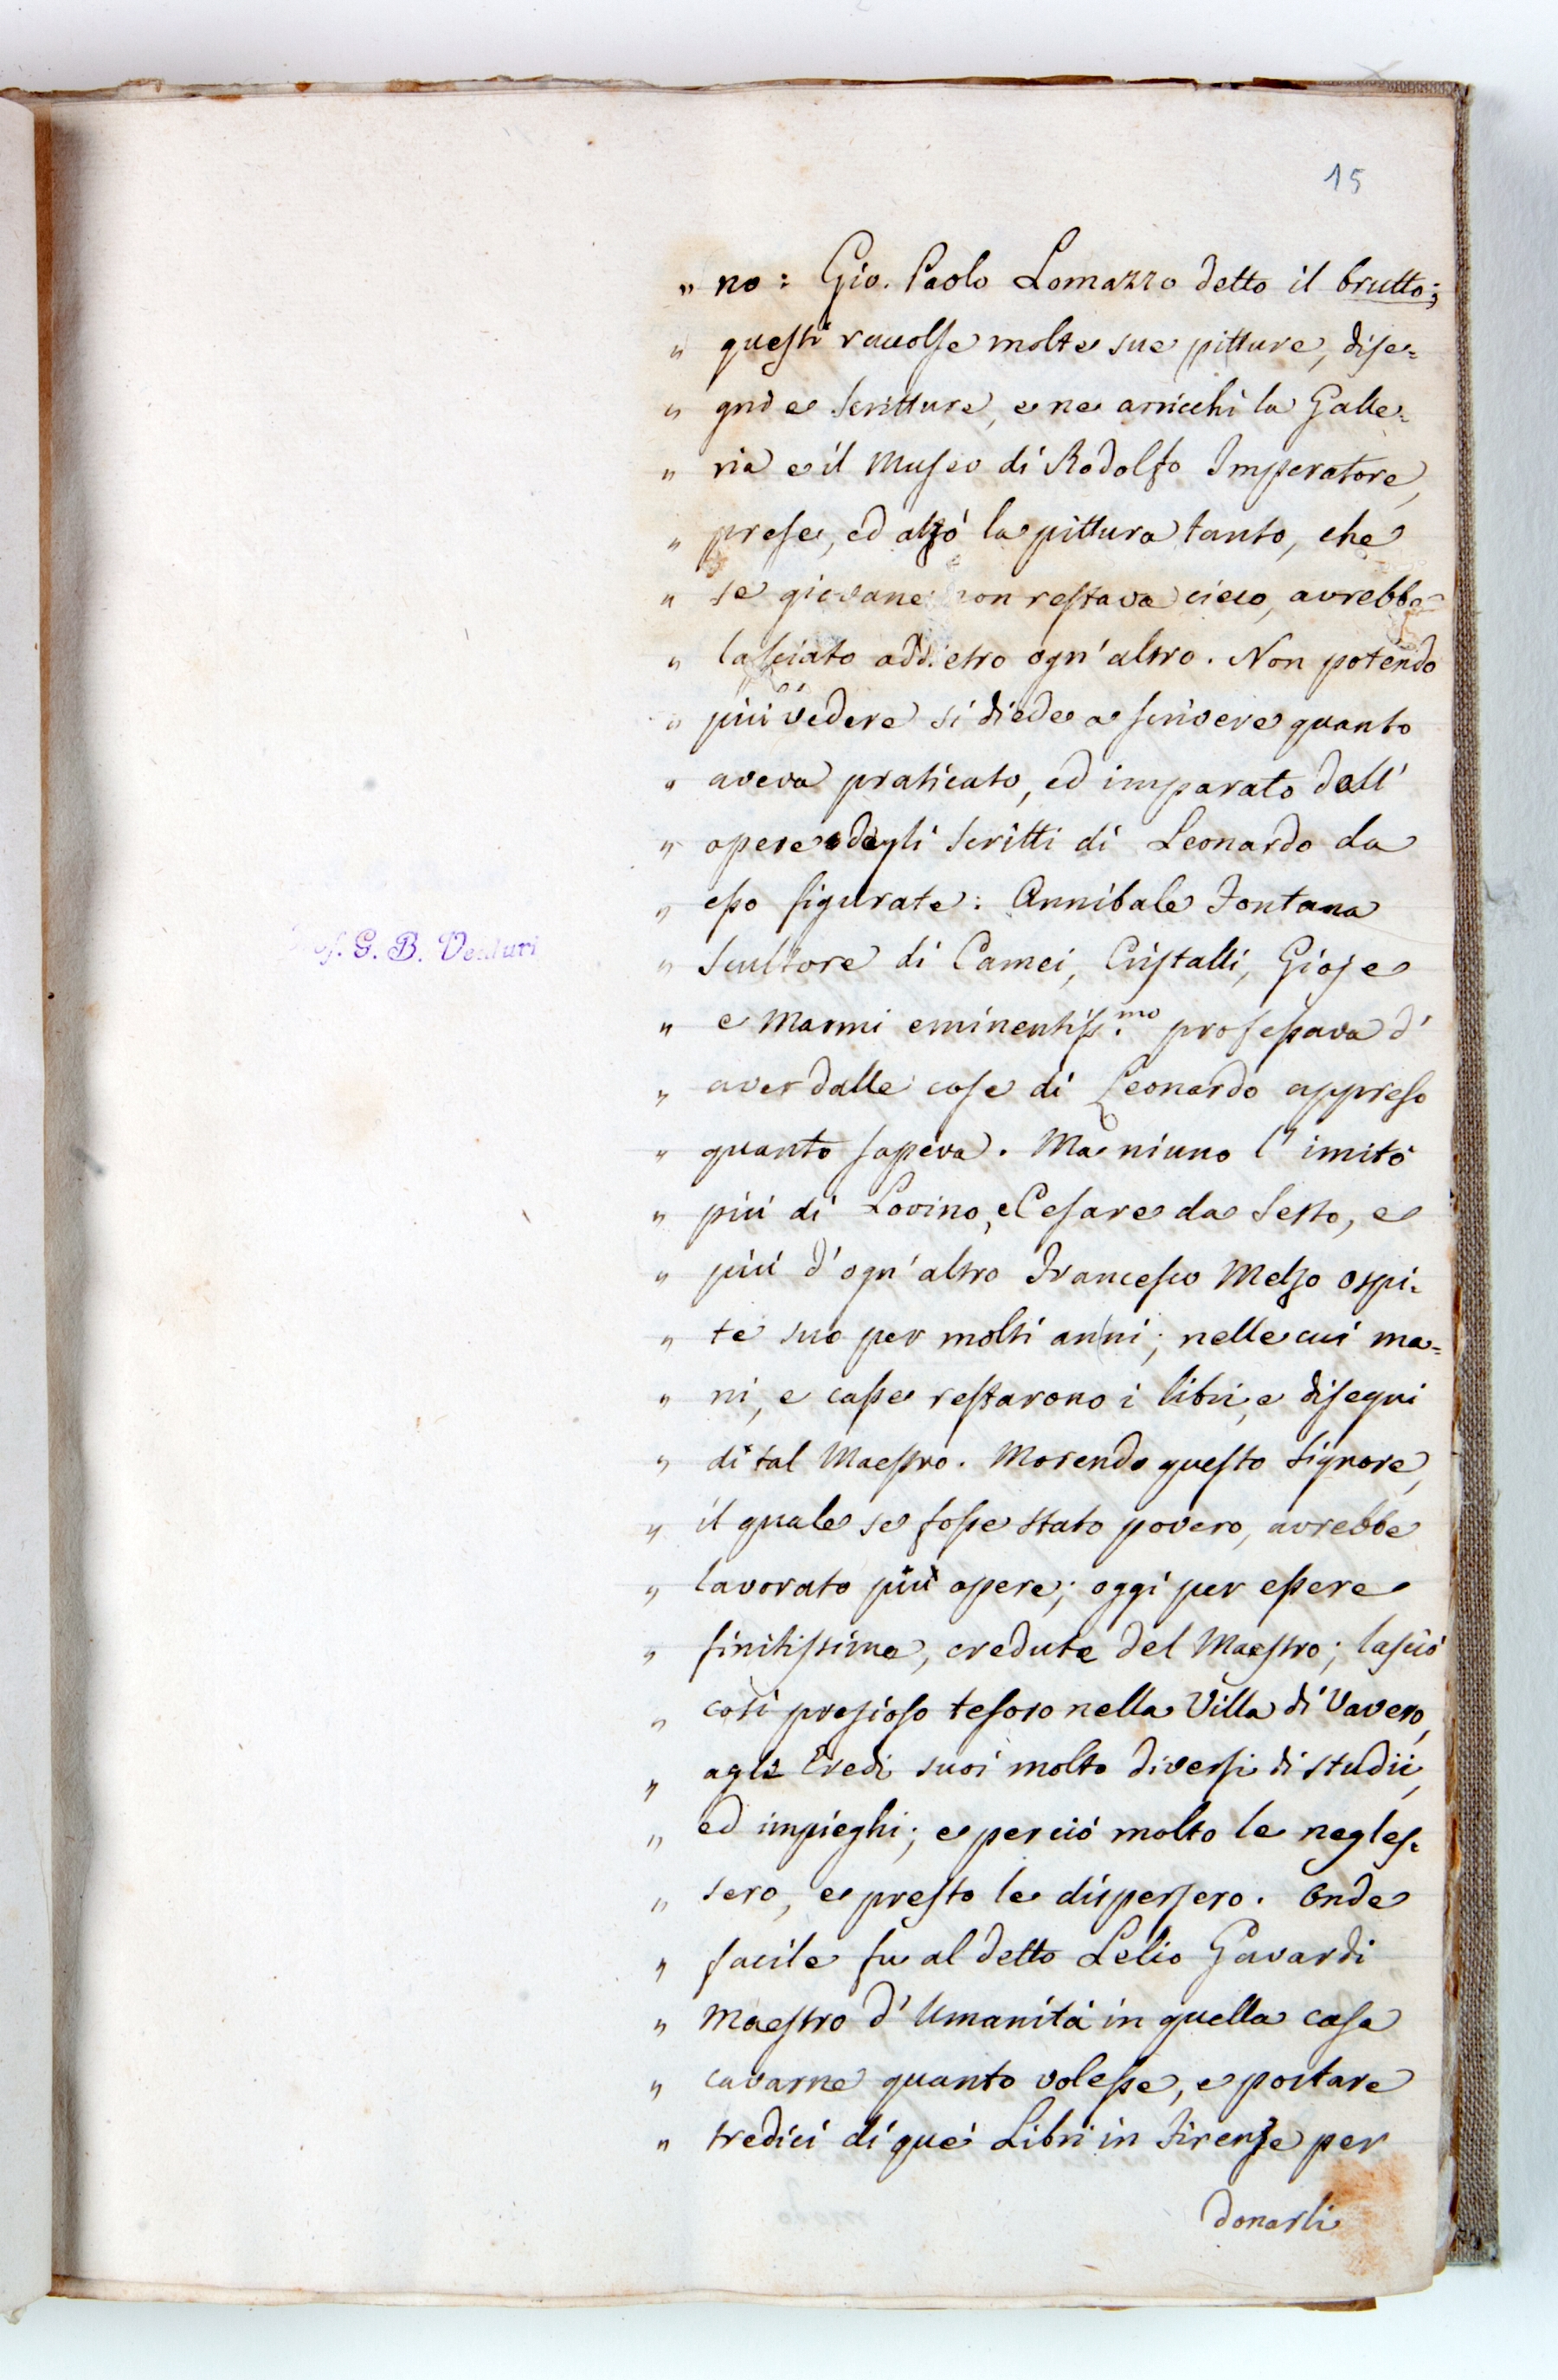 15
" no: Gio. Paolo Lomazzo detto il brutto;
" questi raccolse molte sue pitture, dise=
" gni e scritture, e ne arricchì la Galle=
" ria e il Museo di Rodolfo Imperatore,
" prese, ed alzò la pittura tanto, che
" se giovane non restava cieco, avrebbe
" lasciato addietro ogn' altro. Non potendo
" più vedere si diede a scrivere quanto
" aveva praticato, ed imparato dall'
" opere degli scritti di Leonardo da
" esso figurate: Annibale Fontana
" Scultore di Camei, Cristalli, Gioje
" e Marmi eminentiss.mo professava d'
" aver dalle cose di Leonardo appreso
" quanto sapeva. Ma niuno l' imitò
" più di Lovino, e Cesare da Sesto, e
" più d' ogn' altro Francesco Melzo ospi=
" te suo per molti anni; nelle cui ma=
" ni, e casse restarono i libri, e disegni
" di tal Maestro. Morendo questo Signore,
" il quale se fosse stato povero, avrebbe
" lavorato più opere; oggi per essere
" finitissime, credute del Maestro; lasciò
" così prezioso tesoro nella Villa di Vavero,
" agli Eredi suoi molto diversi di studii,
" ed impieghi; e perciò molto le negles=
" sero, e presto le dispersero. Onde
" facile fu al detto Lelio Gavardi
" Maestro d' Umanità in quella casa
" cavarne quanto volesse, e portare
" tredici di quei Libri in Firenze per
donarli
G. B. Venturi